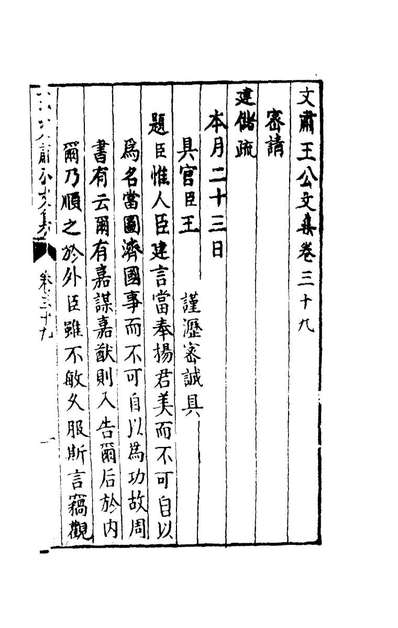 文肅王公文集卷三十九
密請
建儲疏
本月二十三日
具官臣王　謹瀝密誠具
題臣惟人臣建言當奉揚君美而不可自以
為名當圖濟國事而不可自以為功故周
書有云爾有嘉謀嘉猷則入告爾后於內
爾乃順之於外臣雖不敏久服斯言竊觀
文肅公文集
卷三十九
一